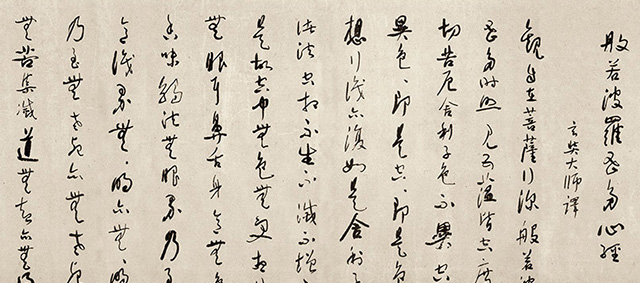 般若波羅蜜多心經
玄奘大師譯
觀自在菩薩行深般若波
蜜多時照見五蘊皆空度
切苦厄舍利子色不異空
異色、即是空、即是色
想行識亦復如是舍利子
諸法空相不生不滅不增
是故空中無色無受想
無眼耳鼻舌身意無色
香味觸法無眼界乃至
意識界無、明亦無、明
乃至無老死亦無老死
無苦集滅道無智亦無得